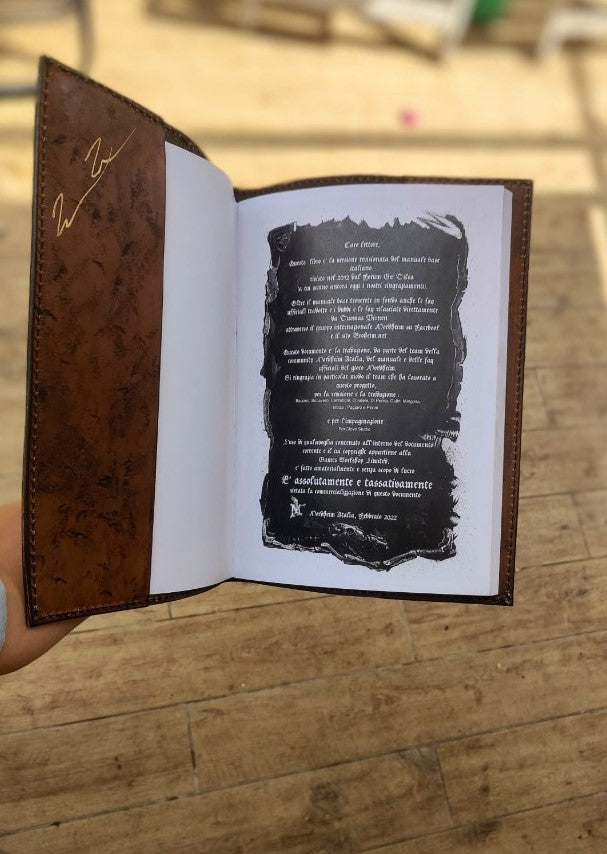 Caro lettore,
Questo libro e' la versione revisionata del manuale base
italiano
uscito nel 2012 dal Forum Gw Tilea
(a cui vanno ancora oggi i nostri ringraziamenti).
Oltre il manuale base troverete in fondo anche le faq
ufficiali tradotte e i dubbi e le faq rilasciate direttamente
da Tuomas Pirinen
attraverso il gruppo internazionale Mordheim su Facebook
e il sito Broheim.net
Questo documento e' la traduzione, da parte del team della
community Mordheim Italia, del manuale e delle faq
ufficiali del gioco Mordheim.
Si ringrazia in particolar modo il team che ha lavorato a
questo progetto,
per la revisione e la traduzione :
e per l'impaginazione
L'uso di qualsivoglia contenuto all'interno del documento
corrente e il cui copyright appartiene alla
Games Workshop Limited,
e' fatto amatorialmente e senza scopo di lucro
E' assolutamente e tassativamente
vietata la commercializzazione di questo documento
Mordheim Italia, Febbraio 2022